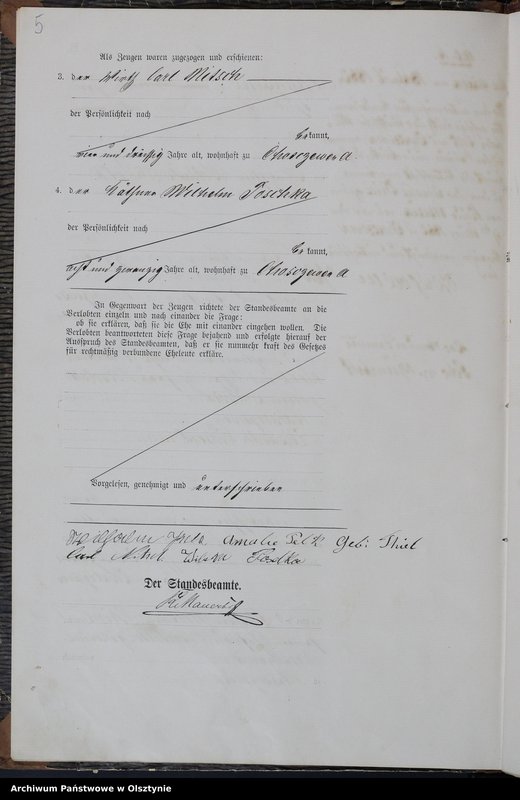 5
Als Zeugen waren zugezogen und erschienen:
3. der Wirth Carl Nitsch
der Persönlichkeit nach
bekannt,
vier und dreißig Jahre alt, wohnhaft zu
4. der Käthner Wilhelm Poschka
der Persönlichkeit nach
bekannt,
acht und zwanzig Jahre alt, wohnhaft zu
In Gegenwart der Zeugen richtete der Standesbeamte an die
Verlobten einzeln und nach einander die Frage:
ob sie erklären, daß sie die Ehe mit einander eingehen wollen. Die
Verlobten beantworteten diese Frage bejahend und erfolgte hierauf der
Ausspruch des Standesbeamten, daß er sie nunmehr kraft des Gesetzes
für rechtmäßig verbundene Eheleute erkläre.
Vorgelesen, genehmigt und unterschrieben
Wilhelm Amalie geb: Thiel
Carl
Der Standesbeamte.
Archiwum Państwowe w Olsztynie